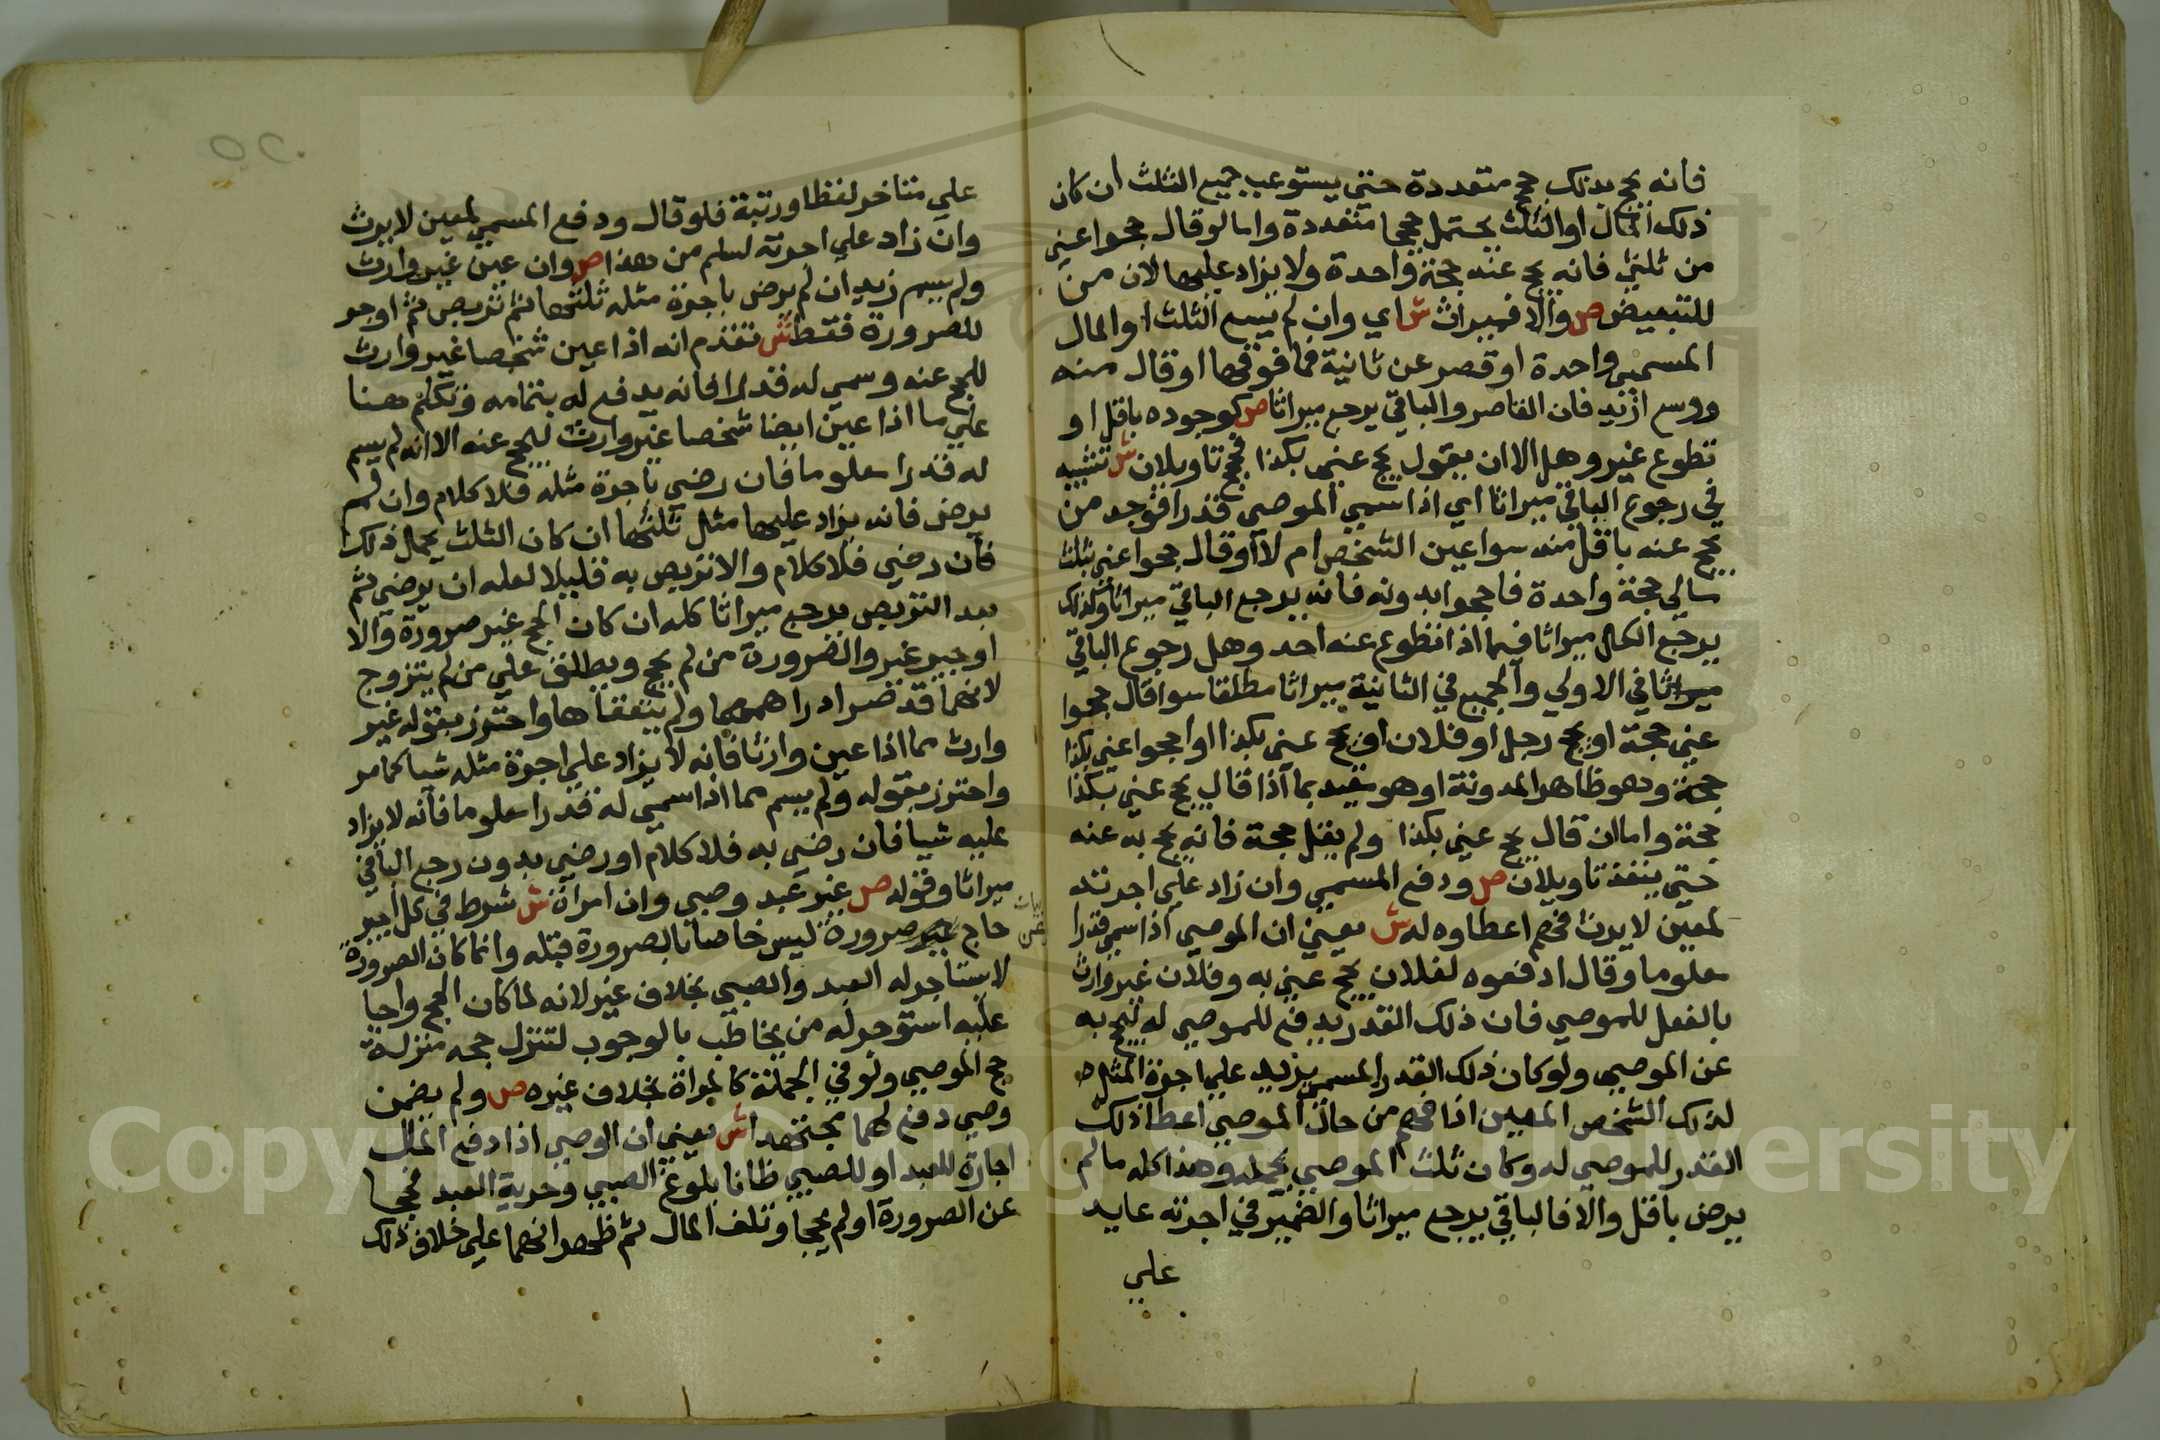 فانه يحج بذلك حجج متعددة حتى يستوعب جميع الثلث ان كان
ذلك المال او الثلث يحتمل حججا متعددة واما لو قال حجوا عني
من ثلثي فانه يحج عنه حجة واحدة ولا يزاد عليها لان من
للتبعيض ص والا فميراث ش اي وان لم يسع الثلث او المال
المسمى واحدة او قصر عن ثانية فما فوقها او قال منه
ووسع ازيد فان القاصر والباقي يرجع ميراثا ص كوجوده باقل او
تطوع غير وهل الا ان يقول يحج عني بكذا فحجج تاويلان ش تشبيه
في رجوع الباقي ميراثا اي اذا سمى الموصي قدرا فوجد من
يحج عنه باقل منه سوا عين الشخص ام لا او قال حجوا عني بثلث
مالي حجة واحدة فاحجوا بدونه فانه يرجع الباقي ميراثا وكذلك
يرجع الكل ميراثا فيما اذا تطوع عنه احد وهل رجوع الباقي
ميراثا في الاولى والجميع في الثانية ميراثا مطلقا سوا قال حجوا
عني حجة او يحج رجل او فلان او يحج عني بكذا او احجوا عني بكذا
حجة وهو ظاهر المدونة او هو مقيد بما اذا قال يحج عني بكذا
حجة واما ان قال يحج عني بكذا ولم يقل حجة فانه يحج به عنه
حتى ينفذ تاويلان ص ودفع المسمى وان زاد على اجرته
لمعين لا يرث فهم اعطاوه له ش يعني ان الموصي اذا سمى قدرا
معلوما وقال ادفعوه لفلان يحج عني به وفلان غير وارث
بالفعل للموصي فان ذلك القدر يدفع للموصى له ليحج به
عن الموصي ولو كان ذلك القدر المسمى يزيد على اجرة المثل
لذلك الشخص المعين اذا فهم من حال الموصي اعطا ذلك
القدر للموصى له وكان ثلث الموصي يحمله وهذا كله ما لم
يرض باقل والا فالباقي يرجع ميراثا والضمير في اجرته عايد
علي
علي متاخر لفظا ورتبة فلو قال ودفع المسمى لمعين لا يرث
وان زاد على اجرته لسلم من هذا ص وان عين غير وارث
ولم يسم زيد ان لم يرض باجرة مثله ثلثها ثم تربص ثم اوجر
للصرورة فقط ش تقدم انه اذا عين شخصا غير وارث
للحج عنه وسمى له قدرا فانه يدفع له بتمامه وتكلم هنا
على ما اذا عين ايضا شخصا غير وارث للحج عنه الا انه لم يسم
له قدرا معلوما فان رضي باجرة مثله فلا كلام وان لم
يرض فانه يزاد عليها مثل ثلثها ان كان الثلث يحمل ذلك
فان رضي فلا كلام والا تربص به قليلا لعله ان يرضى ثم
بعد التربص يرجع ميراثا كله ان كان الحج غير صرورة والا
اوجر غير والضرورة من لم يحج ويطلق على من لم يتزوج
لانهما قد صرا دراهمهما ولم ينفقاها واحترز بقوله غير
وارث مما اذا عين وارثا فانه لا يزاد على اجرة مثله شيا كما مر
واحترز بقوله ولم يسم مما اذا سمى له قدرا معلوما فانه لا يزاد
عليه شيا فان رضي به فلا كلام او رضي بدون رجع الباقي
ميراثا وقوله ص غير عبد وصبي وان امراة ش شرط في كل اجير
حاج صرورة ليس خاصا بالصرورة قبله وانما كان الصرورة
لا يستاجر له العبد والصبي بخلاف غير لانه لما كان الحج واجبا
عليه استوجر له من يخاطب بالوجوب لتنزل حجه منزلة
حج الموصي ولو في الجملة كالمراة بخلاف غيره ص ولم يضمن
وصي دفع لهما مجتهدا ش يعني ان الوصي اذا دفع المال
اجارة للعبد او للصبي ظانا بلوغ الصبي وحرية العبد فحجا
عن الصرورة او لم يحجا وتلف المال ثم ظهر انهما على خلاف ذلك
Copyright © King Saud University